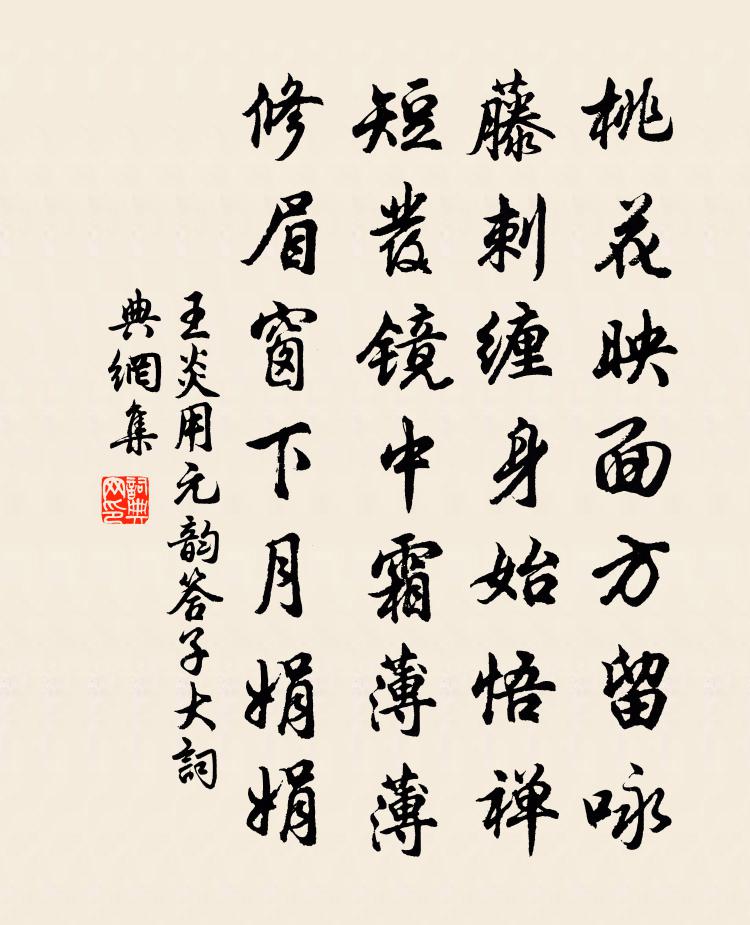 桃花映面方留咏
藤刺缠身始悟禅
短发镜中霜薄薄
修眉窗下月娟娟
王炎用元韵答子大詞
典網集
詞典网印